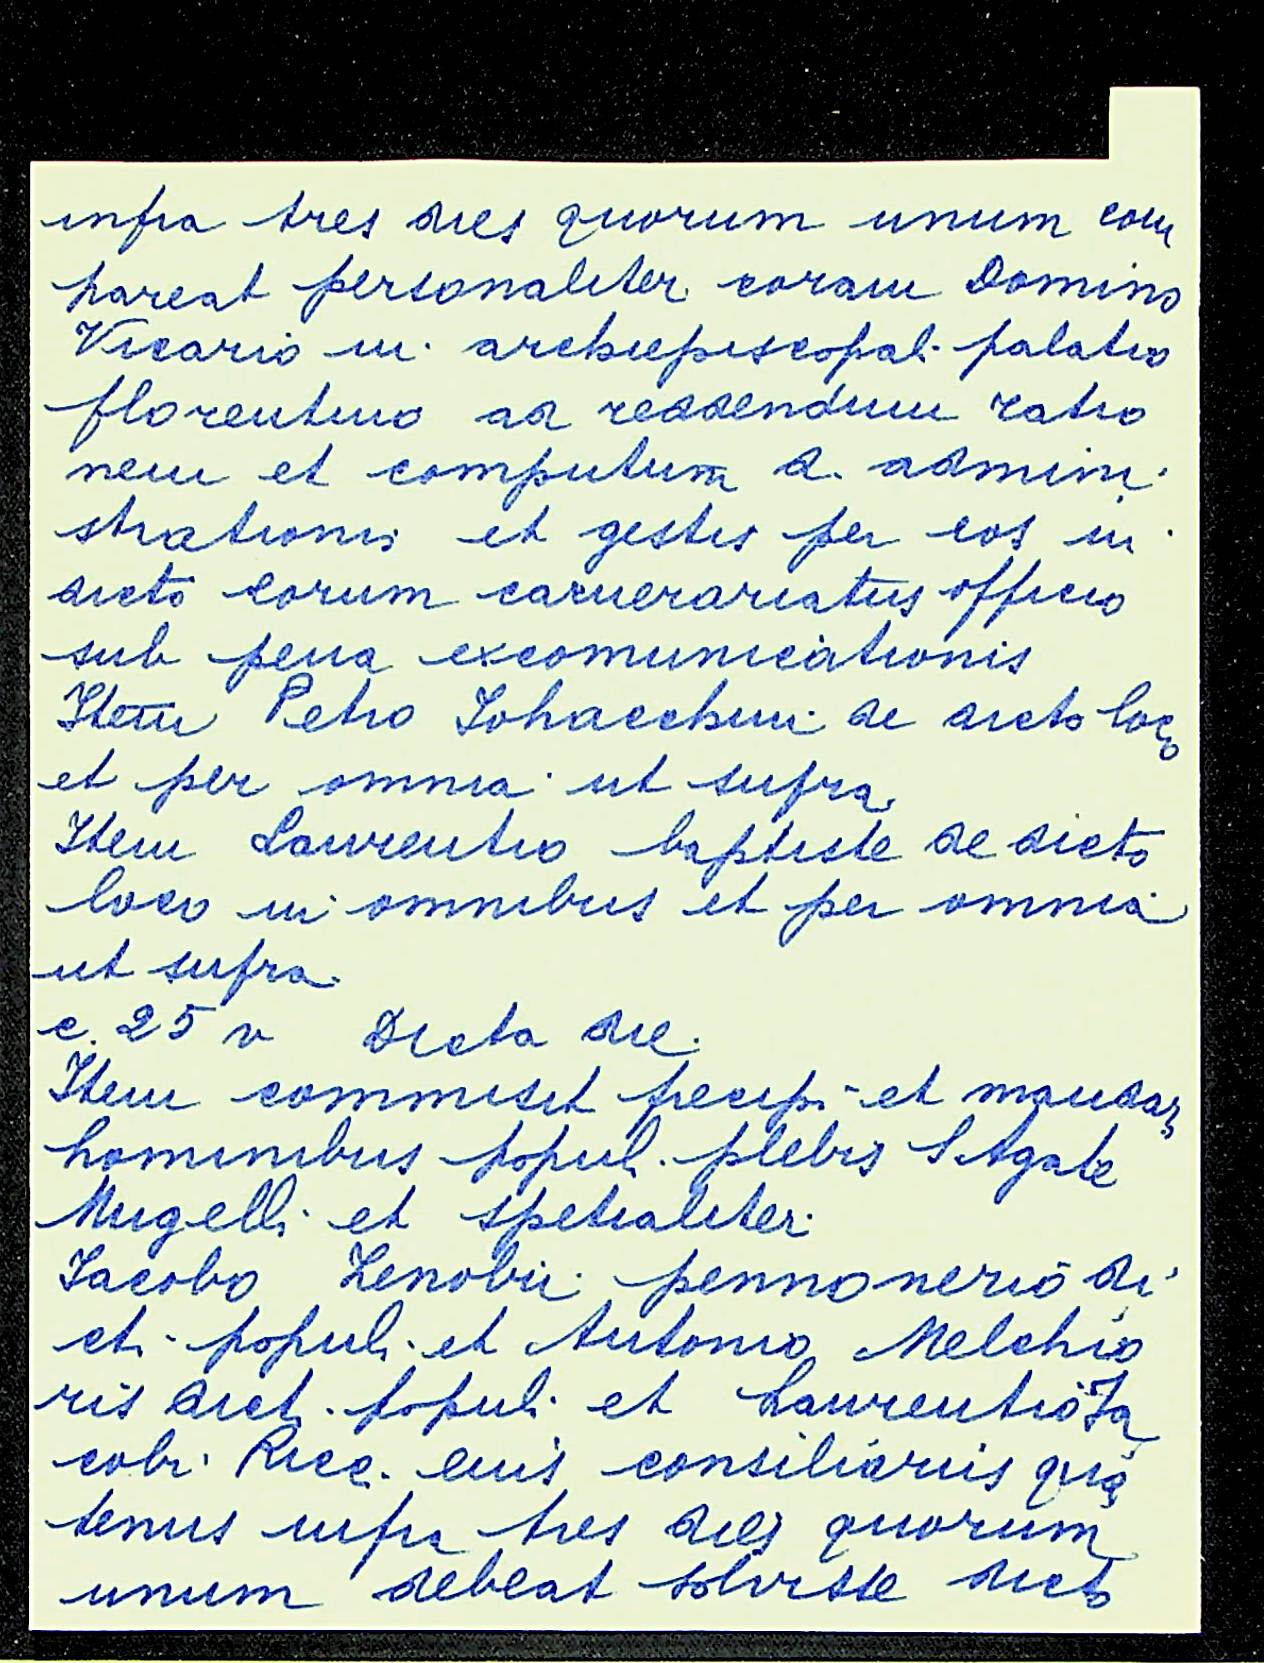 infra tres dies quorum unum com
pareat personaliter coram Domino
Vicario in archiepiscopal. palatio
florentino ad reddendum ratio
nem et computum d. admini
strationis et gestis per eos in
dicto eorum camerariatus officio
sub pena excomunicationis
Item Petro Johacchini de dicto loco
et per omnia ut supra
Item Laurentio baptiste de dicto
loco in omnibus et per omnia
ut supra.
c. 25 v Dicta die.
Item commisit precipi et mandar
hominibus popul. plebis S Agate
Mugelli et spetialiter
Jacobo Zenobii pennonerio di
cti populi et Antonio Melchio
ris dict. populi et Laurentio Ja
cobi Ricc. eius consiliariis qua
tenus infra tres dies quorum
unum debeat solvisse dicto